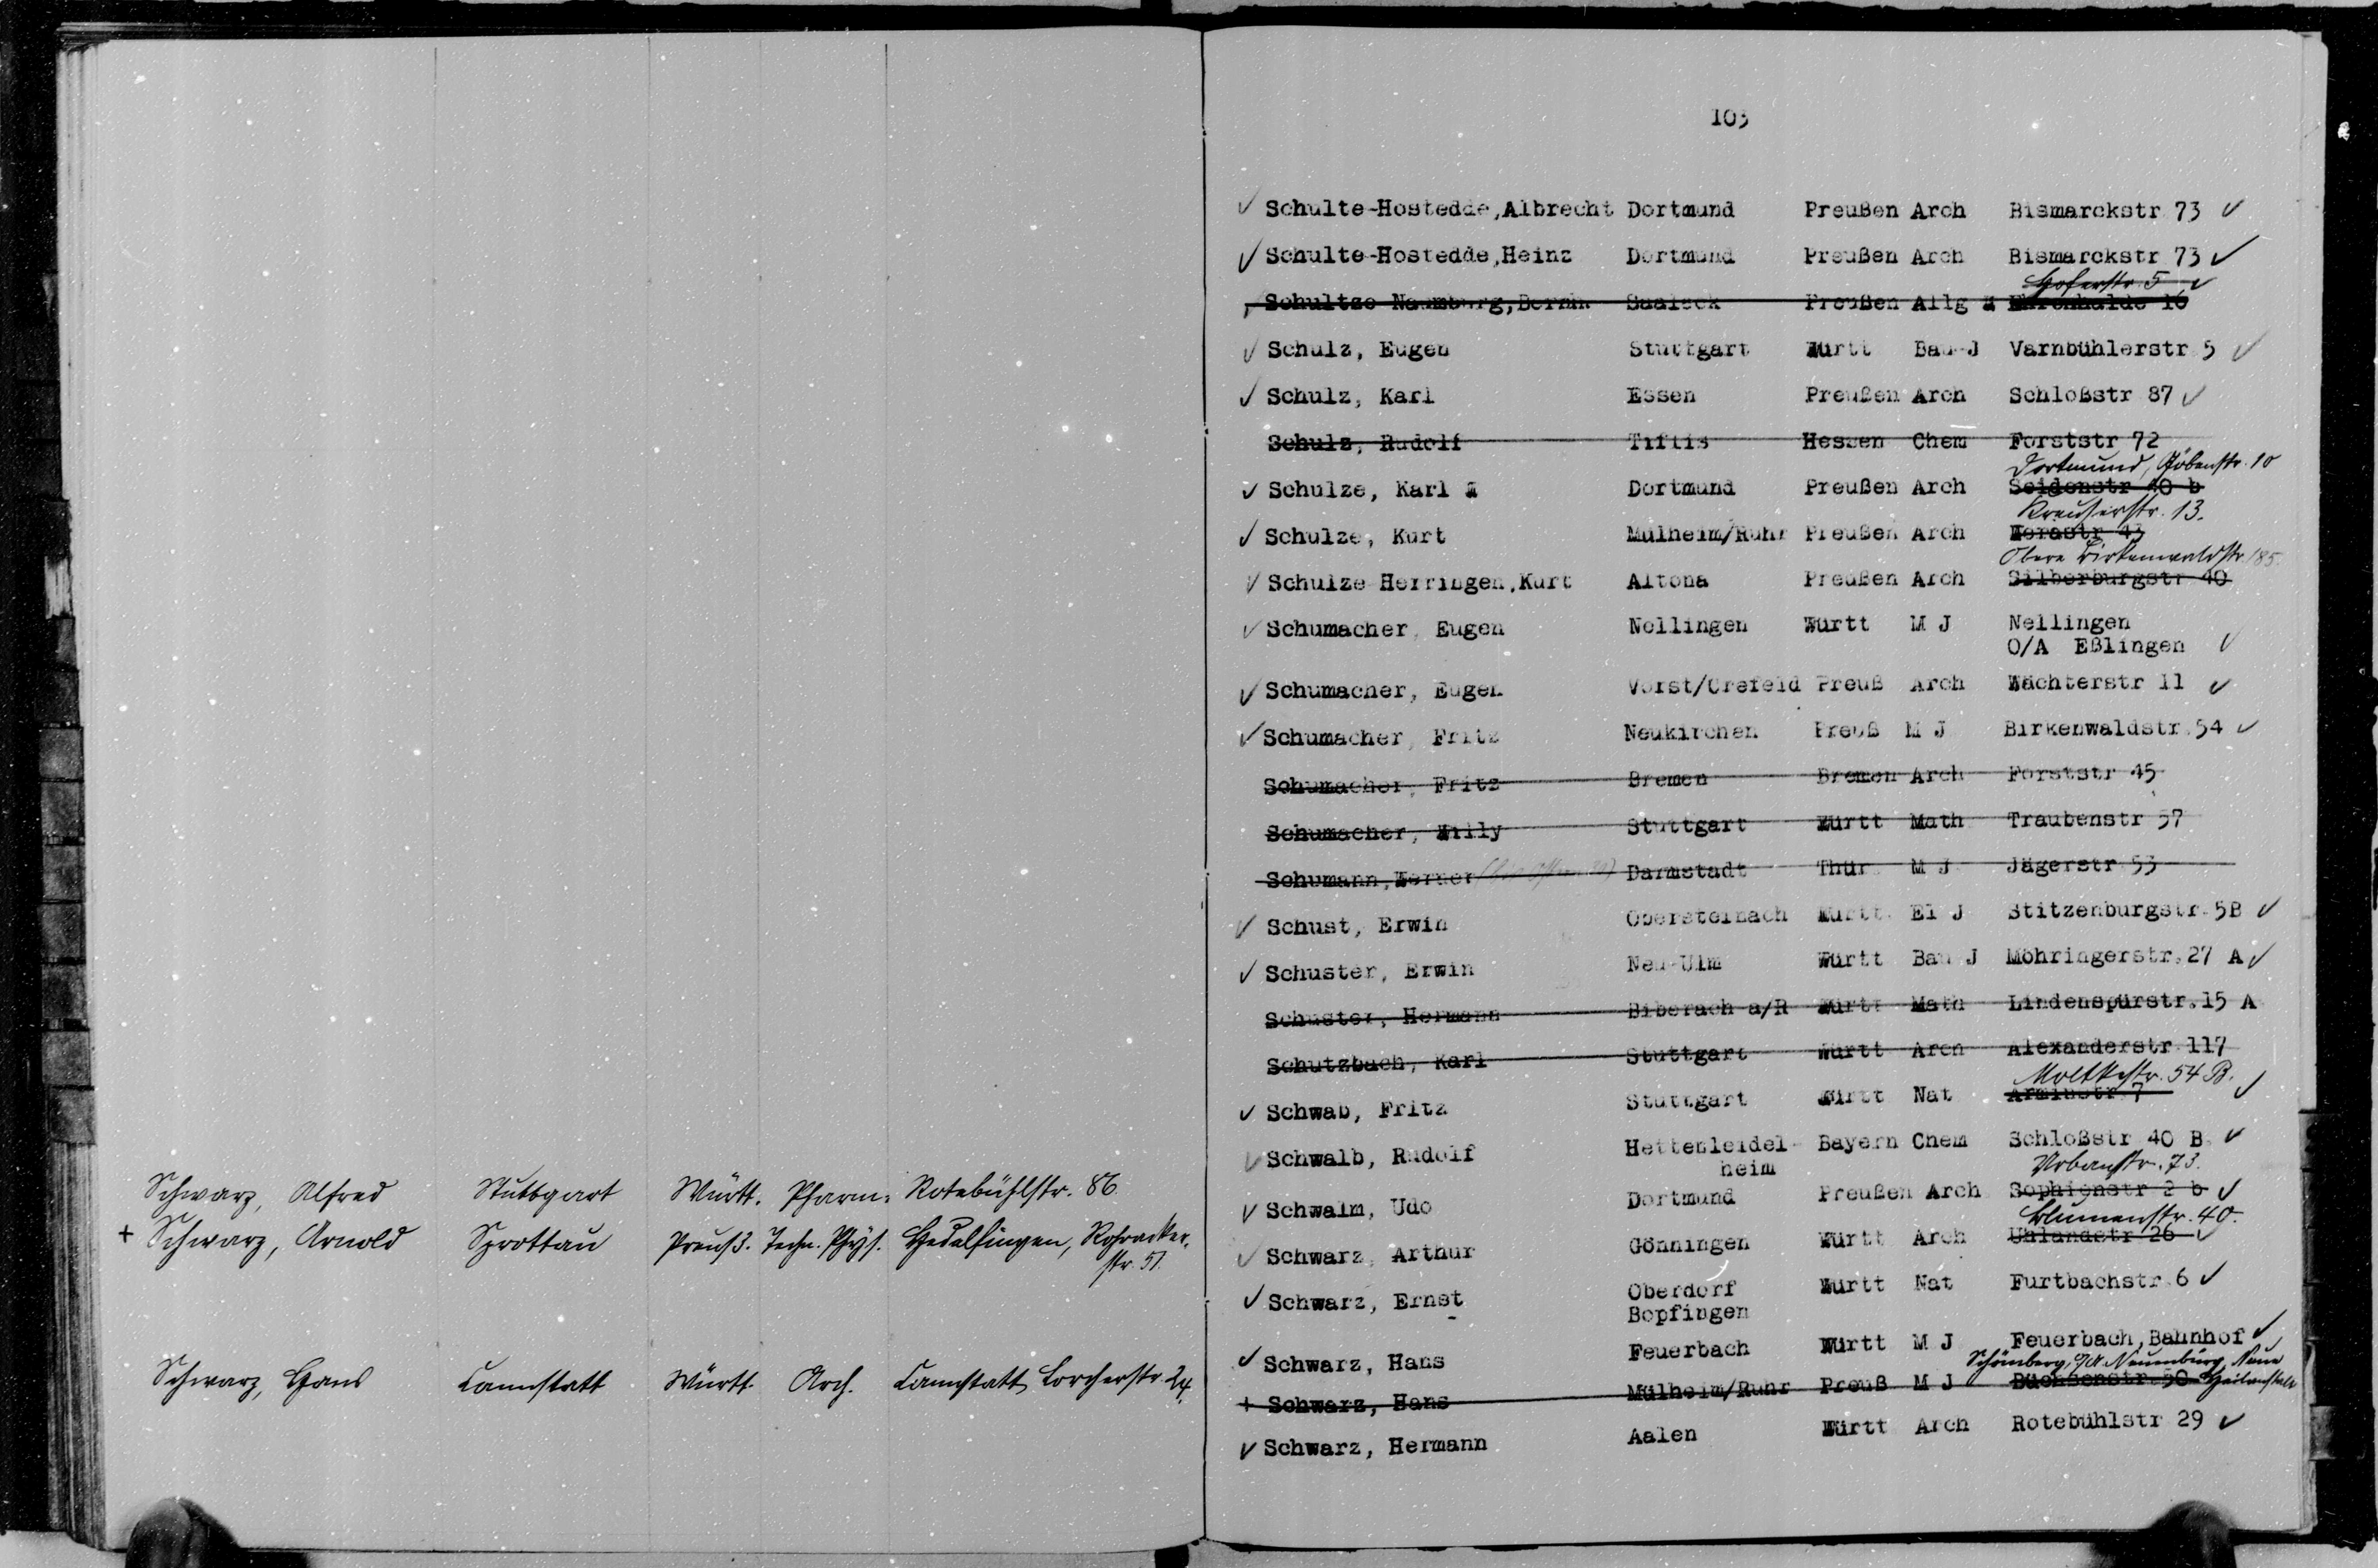 Schwarz, Alfred Stuttgart Württ. Pharm. Rotebühlstr. 86
+ Schwarz, Arnold Sprottau Preuß. Techn. Phys. Hedelfingen, Rohracker-
str. 51.
Schwarz, Hans Cannstatt Württ. Arch. Cannstatt Lorcherstr. 24.
103
✓ Schulte-Hostedde,Albrecht Dortmund Preußen Arch Bismarckstr 73 ✓
✓ Schulte-Hostedde,Heinz Dortmund Preußen Arch Bismarckstr 73 ✓
Hoferstr. 5 ✓
Schultze Naumburg,Bernh Saaleck Preußen Allg Ehrenhalde 16
✓ Schulz, Eugen Stuttgart Württ Bau-J Varnbühlerstr 5 ✓
✓ Schulz, Karl Essen Preußen Arch Schloßstr 87 ✓
Schulz, Rudolf Tiflis Hessen Chem Forststr 72
Dortmund, Göbenstr. 10
✓ Schulze, Karl Dortmund Preußen Arch Seidenstr 40 b
Kreuserstr. 13.
✓ Schulze, Kurt Mülheim/Ruhr Preußen Arch Werastr 43
Obere Birkenwaldstr. 185.
✓ Schulze Herringen,Kurt Altona Preußen Arch Silberburgstr 40
✓ Schumacher, Eugen Nellingen Württ M J Nellingen
O/A Eßlingen ✓
✓ Schumacher, Eugen Vorst/Crefeld Preuß Arch Wächterstr 11 ✓
✓ Schumacher, Fritz Neukirchen Preuß M J Birkenwaldstr.54 ✓
Schumacher, Fritz Bremen Bremen Arch Forststr 45
Schumacher, Willy Stuttgart Württ Math Traubenstr 57
Schumann,Werner Darmstadt Thür M J Jägerstr 53
✓ Schust, Erwin Obersteinach Württ. El J Stitzenburgstr.5B ✓
✓ Schuster, Erwin Neu-Ulm Württ Bau J Möhringerstr.27 A ✓
Schuster, Hermann Biberach a/R Württ Math Lindenspürstr.15 A
Schutzbach, Karl Stuttgart Württ Arch Alexanderstr 117
Moltkestr. 54 B. ✓
✓ Schwab, Fritz Stuttgart Württ Nat Arminstr 7
✓ Schwalb, Rudolf Hettenleidel- Bayern Chem Schloßstr 40 B ✓
heim
Urbanstr. 73.
✓ Schwalm, Udo Dortmund Preußen Arch Sophienstr 2 b ✓
Blumenstr. 40.
✓ Schwarz, Arthur Gönningen Württ Arch Uhlandstr 26 ✓
✓ Schwarz, Ernst Oberdorf Württ Nat Furtbachstr.6 ✓
Bopfingen
✓ Schwarz, Hans Feuerbach Württ M J Feuerbach,Bahnhof ✓
Schömberg, O/A. Neuenbürg, Neue
+ Schwarz, Hans Mülheim/Ruhr Preuß M J Büchsenstr 50 Heilanstalt
✓ Schwarz, Hermann Aalen Württ Arch Rotebühlstr 29 ✓